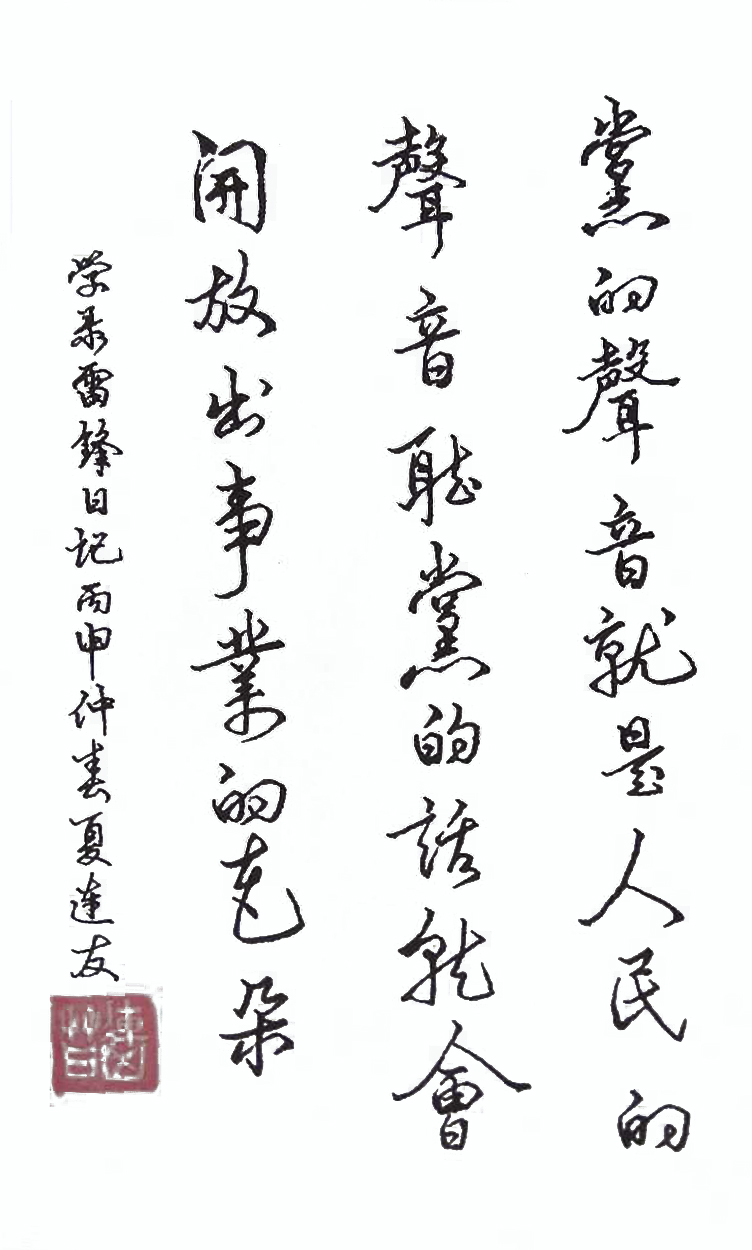 黨的聲音就是人民的
聲音聽黨的話就會
開放出事業的花朵
学录雷鋒日记丙申仲春夏蓮友